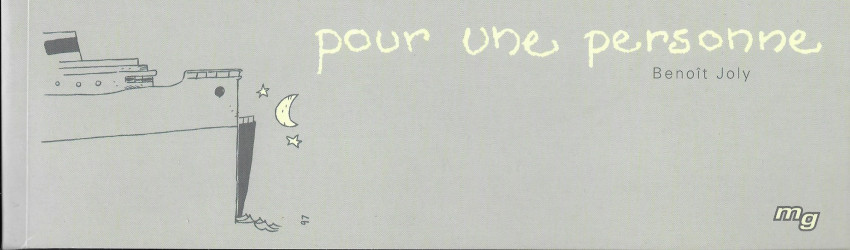 pour une personne
Benoît Joly
97
mg